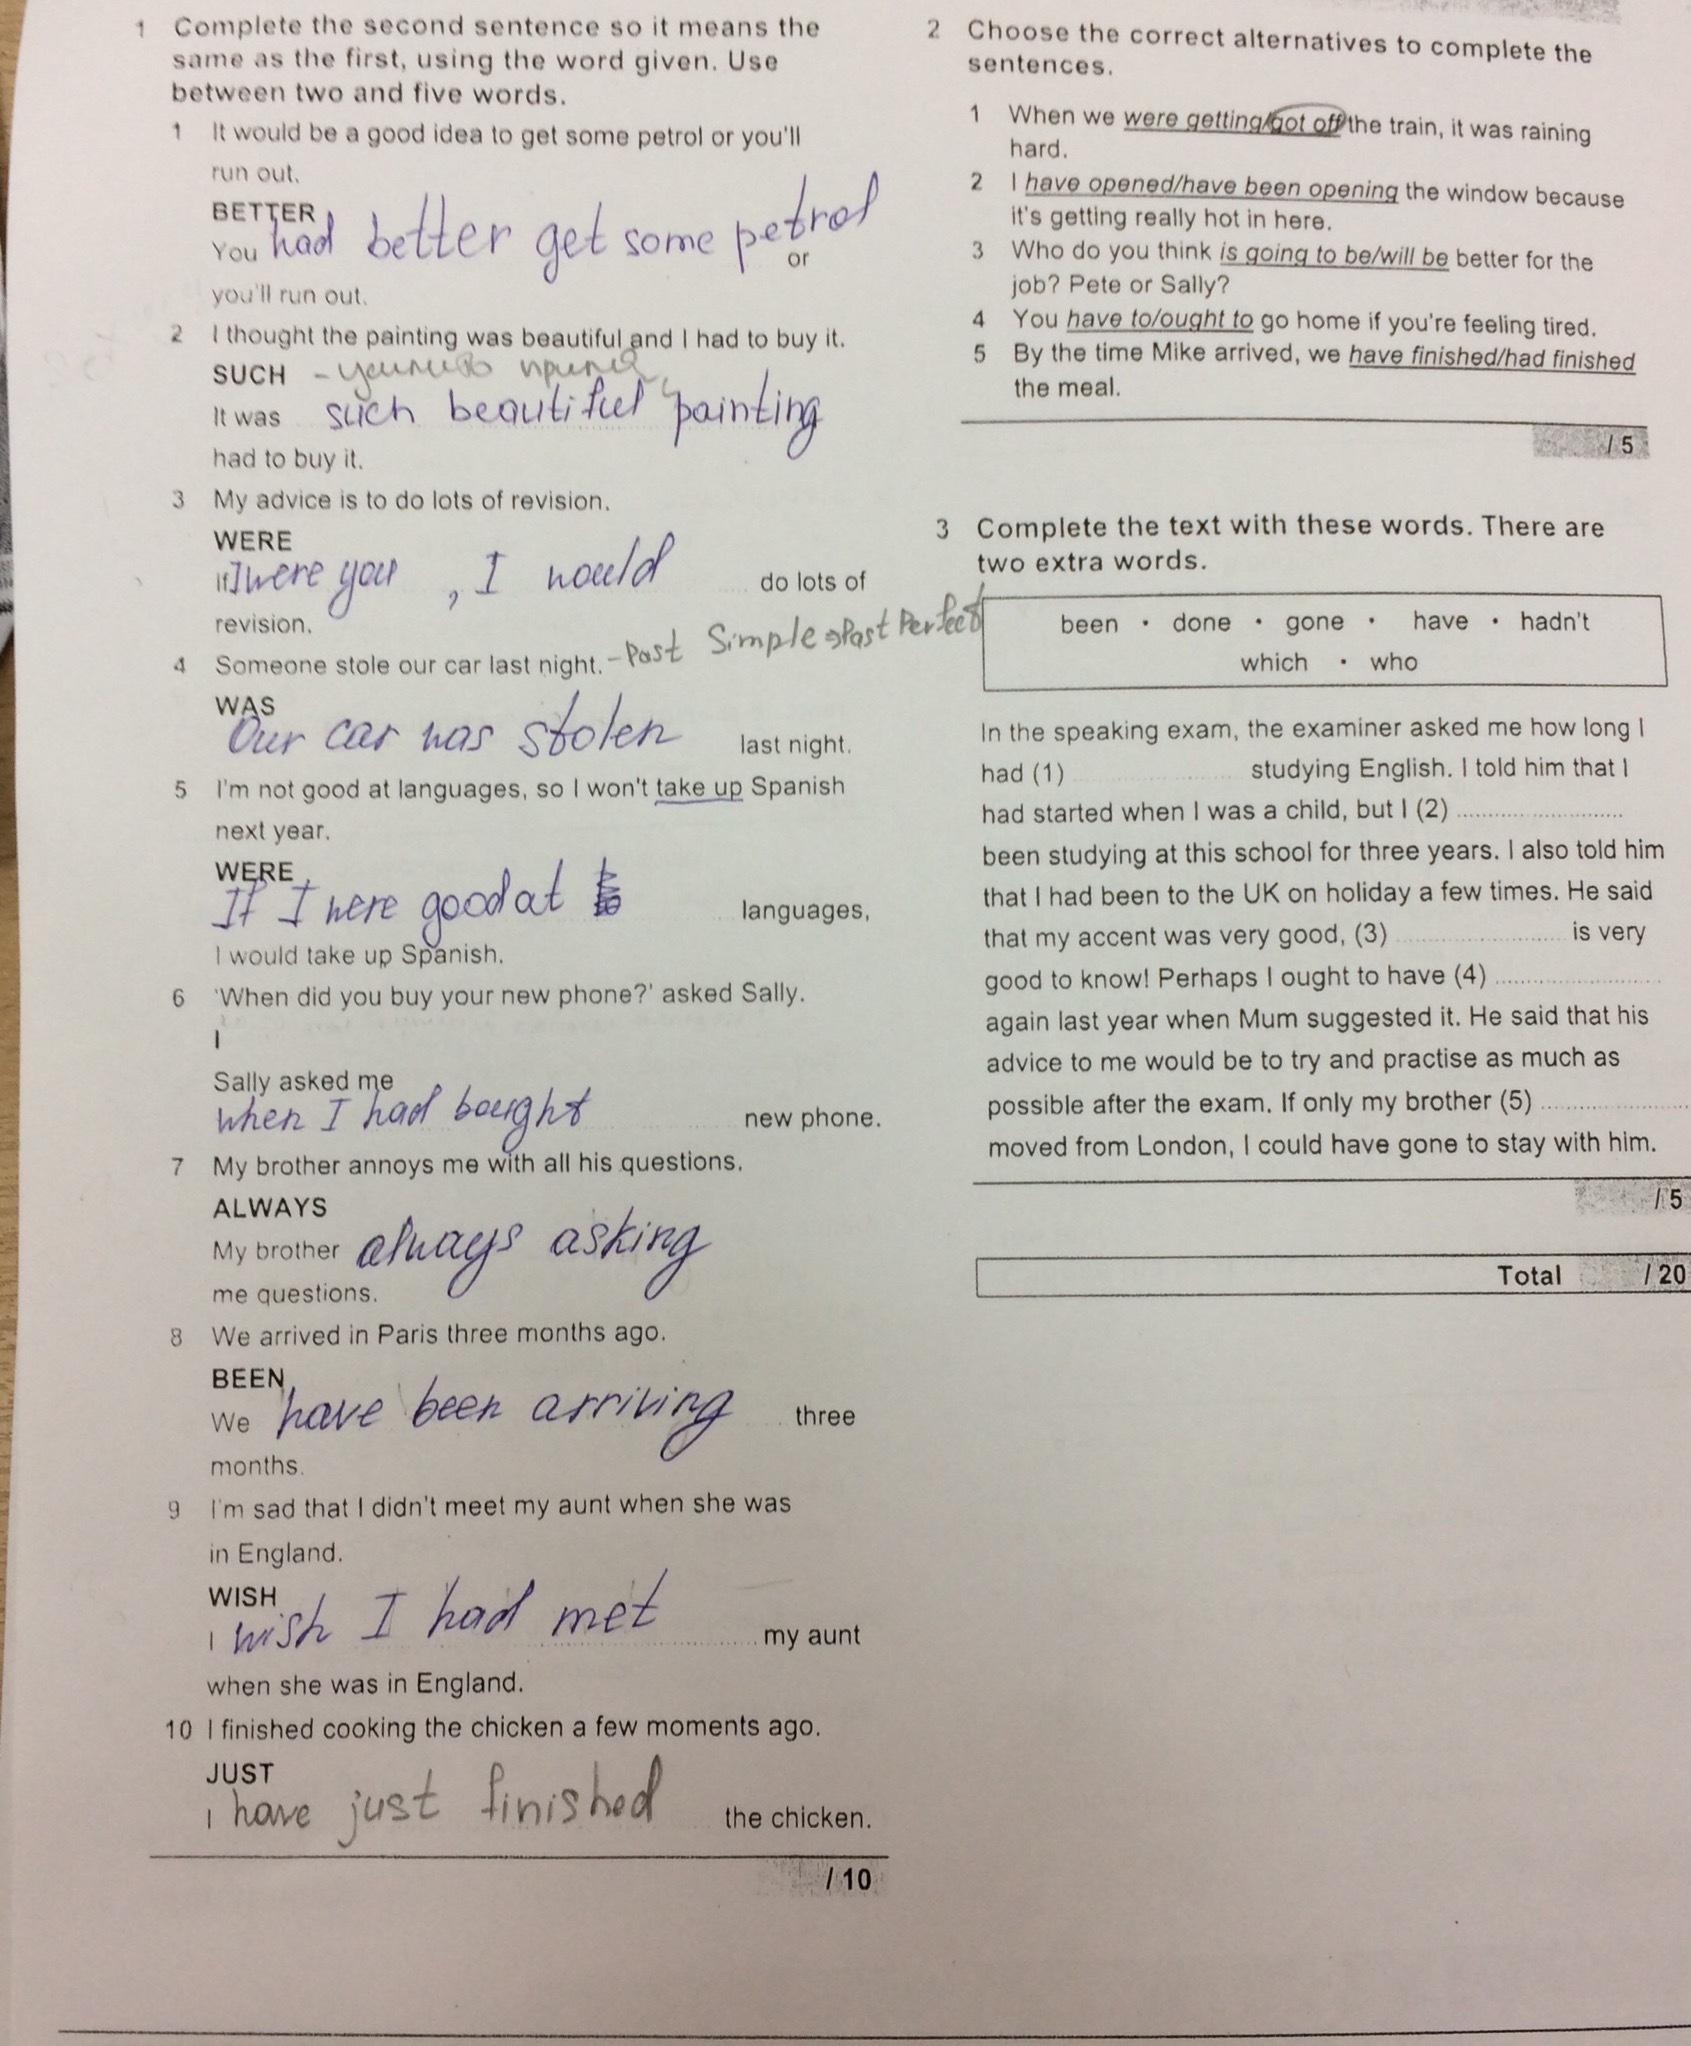 1 Complete the second sentence so it means the
same as the first, using the word given. Use
between two and five words.
1 It would be a good idea to get some petrol or you'll
run out.
BETTER
You had better get some petrol or
you'll run out.
2 I thought the painting was beautiful and I had to buy it.
SUCH -
It was such beautiful painting
had to buy it.
3 My advice is to do lots of revision.
WERE
If I were you, I would do lots of
revision.
4 Someone stole our car last night. - Past Simple → Past Perfect
WAS
Our car was stolen last night.
5 I'm not good at languages, so I won't take up Spanish
next year.
WERE
If I were good at languages,
I would take up Spanish.
6 'When did you buy your new phone?' asked Sally.
I
Sally asked me
when I had bought new phone.
7 My brother annoys me with all his questions.
ALWAYS
My brother always asking
me questions.
8 We arrived in Paris three months ago.
BEEN
We have been arriving three
months.
9 I'm sad that I didn't meet my aunt when she was
in England.
WISH
I wish I had met my aunt
when she was in England.
10 I finished cooking the chicken a few moments ago.
JUST
I have just finished the chicken.
/ 10
2 Choose the correct alternatives to complete the
sentences.
1 When we were getting/got off the train, it was raining
hard.
2 I have opened/have been opening the window because
it's getting really hot in here.
3 Who do you think is going to be/will be better for the
job? Pete or Sally?
4 You have to/ought to go home if you're feeling tired.
5 By the time Mike arrived, we have finished/had finished
the meal.
/ 5
3 Complete the text with these words. There are
two extra words.
been • done • gone • have • hadn't
which • who
In the speaking exam, the examiner asked me how long I
had (1) studying English. I told him that I
had started when I was a child, but I (2)
been studying at this school for three years. I also told him
that I had been to the UK on holiday a few times. He said
that my accent was very good, (3) is very
good to know! Perhaps I ought to have (4)
again last year when Mum suggested it. He said that his
advice to me would be to try and practise as much as
possible after the exam. If only my brother (5)
moved from London, I could have gone to stay with him.
/ 5
Total / 20